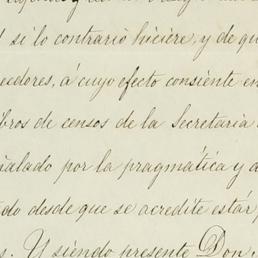 si lo contrario hiciére, y de qu
ecdores, á cuyo efecto consiente en
bros de censos de la Secretaria
alado por la pragmática y a
do desde que se acredite estár p
s. Y siéndo presente Don